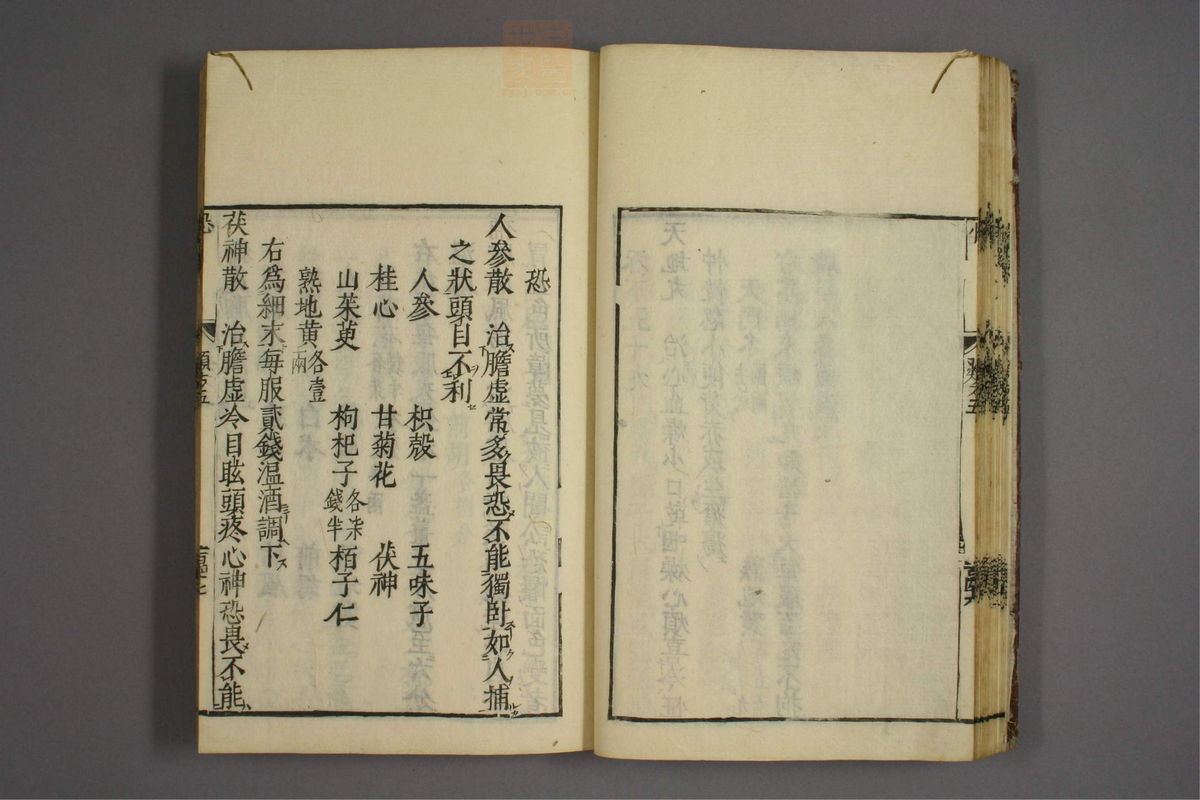 恐
人參散　治膽虛常多畏恐不能獨卧如人捕
之狀頭目不利
人參　枳殼　五味子
桂心　甘菊花　茯神
山茱萸　枸杞子各柒錢半　栢子仁
熟地黃各壹兩
右爲細末每服貳錢溫酒調下
茯神散　治膽虛冷目眩頭疼心神恐畏不能